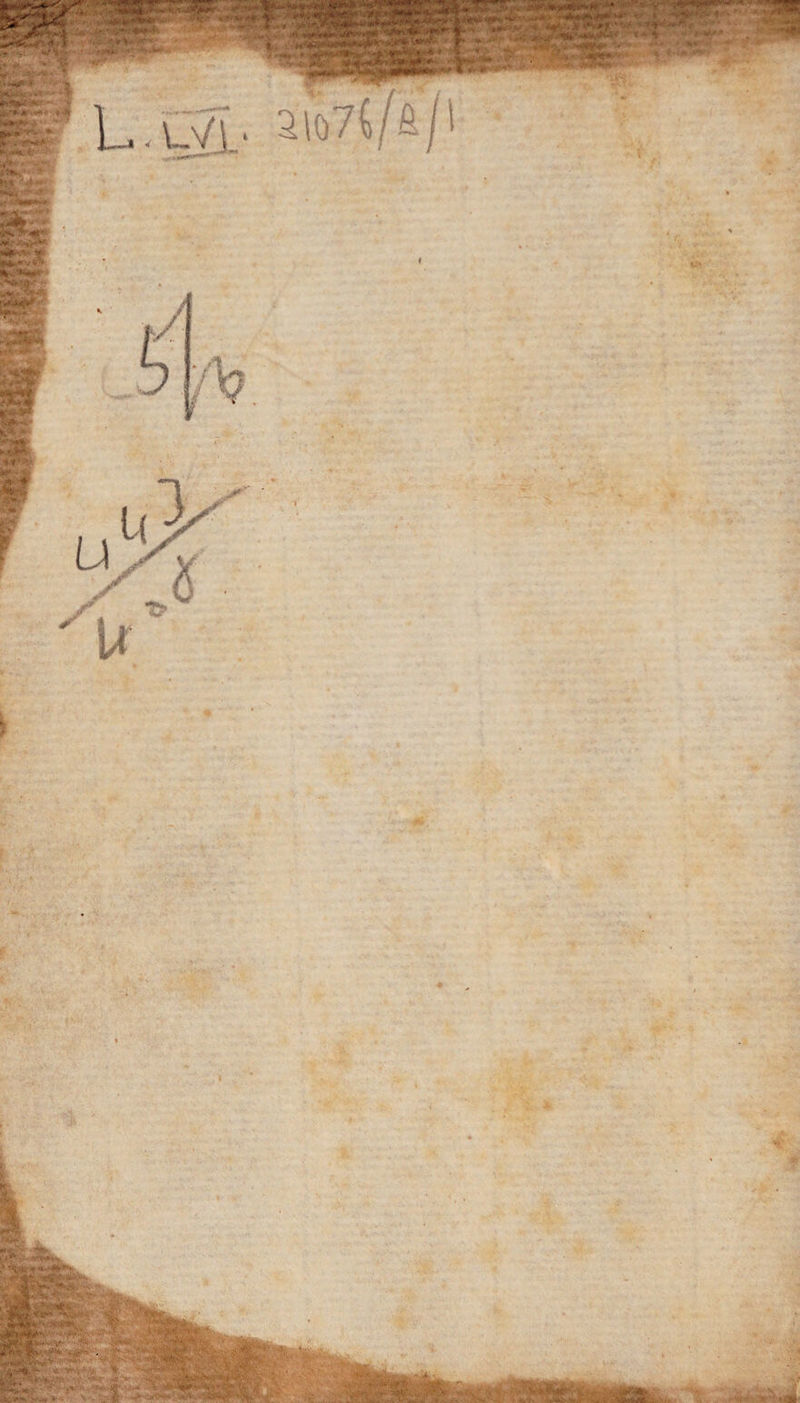 L. LVI. 21076/B/1
5/6
443
408